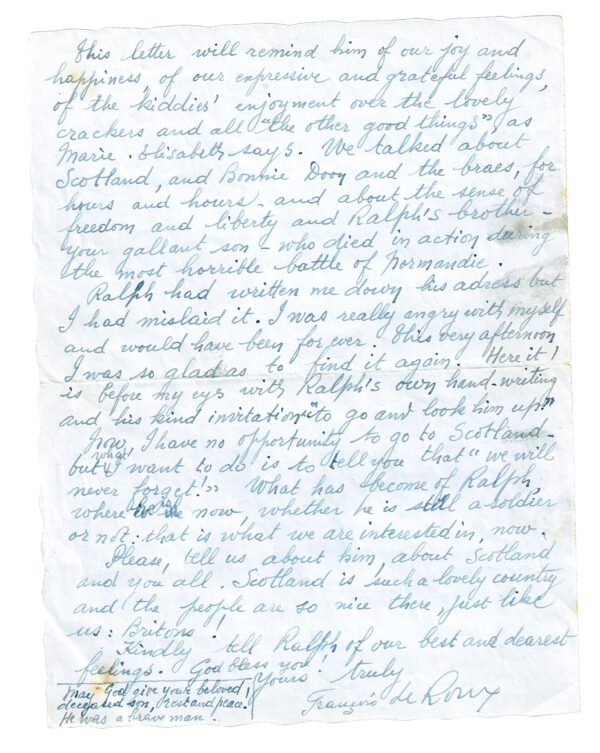 This letter will remind him of our joy and
happiness, of our expressive and grateful feelings,
of the kiddies' enjoyment over the lovely
crackers and all "the other good things", as
Marie-Elisabeth says. We talked about
Scotland, and Bonnie Doon and the braes, for
hours and hours - and about the sense of
freedom and liberty and Ralph's brother -
your gallant son - who died in action during
the most horrible battle of Normandie.
Ralph had written me down his adress but
I had mislaid it. I was really angry with myself
and would have been for ever. This very afternoon
I was so glad as to find it again. Here it
is before my eys with Ralph's own hand-writing
and his kind invitation "to go and look him up."
Now, I have no opportunity to go to Scotland -
but what I want to do is to tell you that "we will
never forget!" What has become of Ralph,
where he is now, whether he is still a soldier
or not: that is what we are interested in, now.
Please, tell us about him, about Scotland
and you all. Scotland is such a lovely country
and the people are so nice there, just like
us: Britons!
Kindly tell Ralph of our best and dearest
feelings. God bless you!
Yours truly
François de Roux
May God give your beloved,
deceased son, Rest and peace.
He was a brave man!